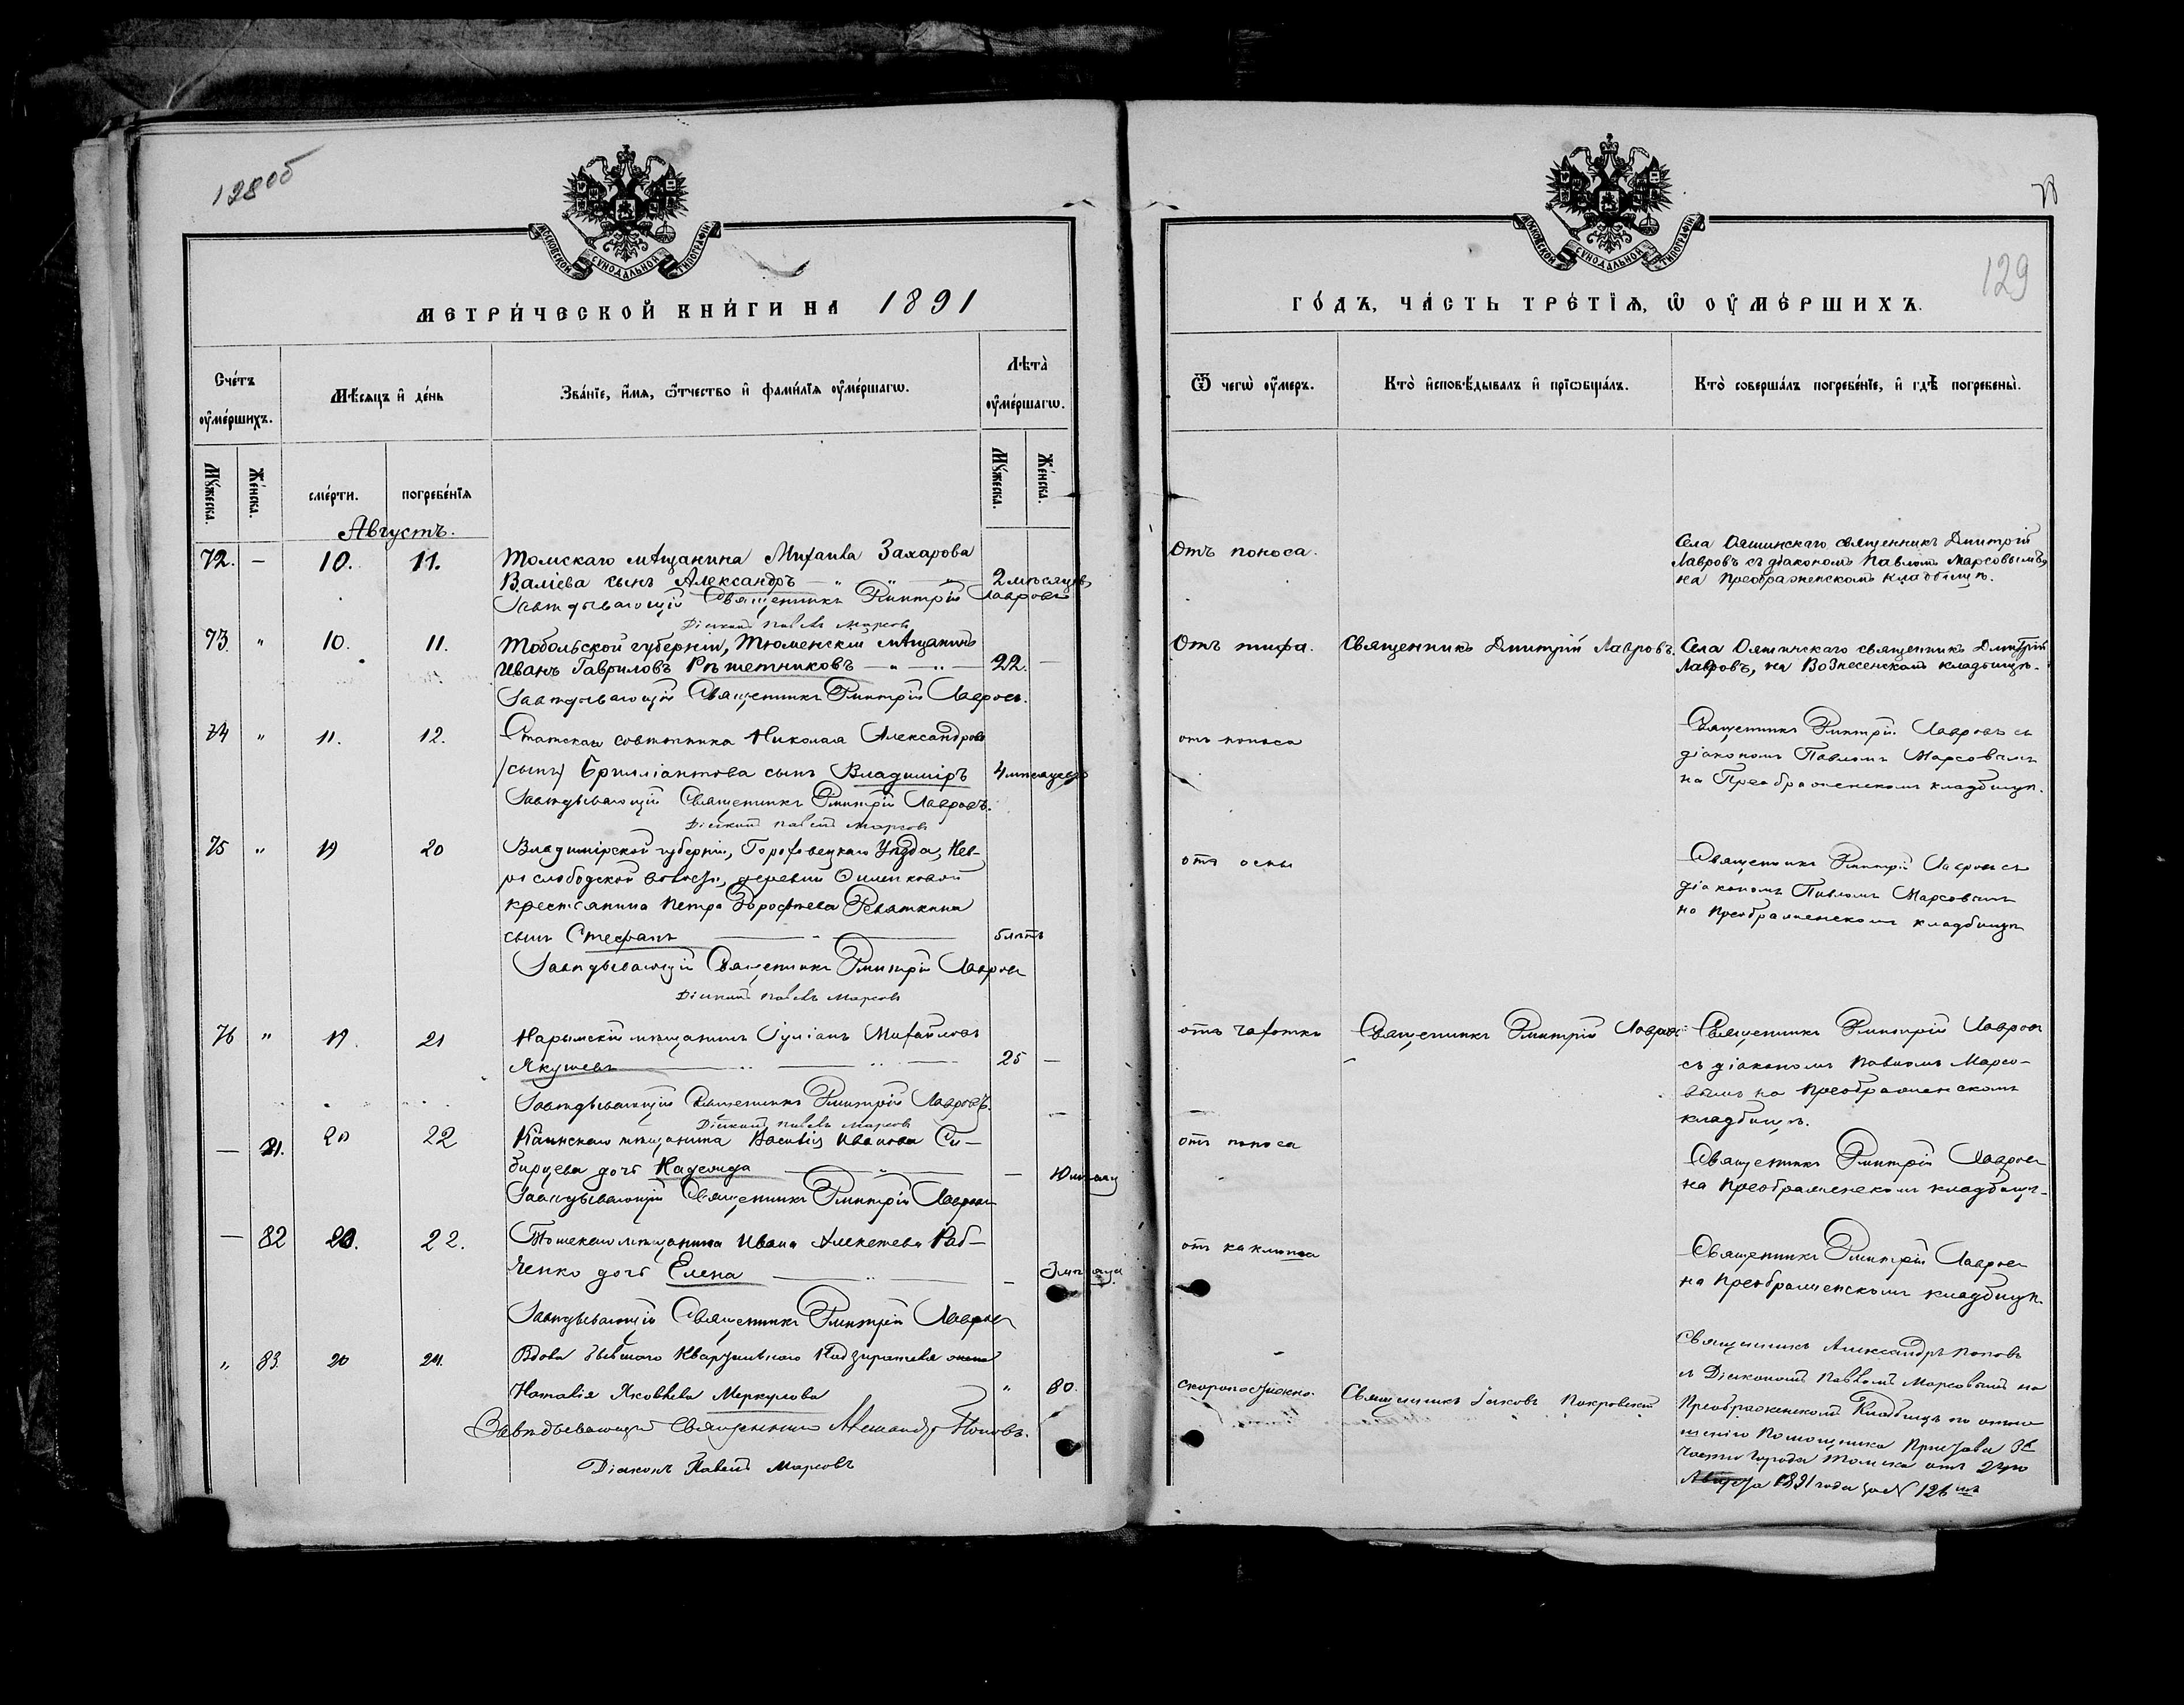 128 об
МОСКОВСКОЙ СѴНОДАЛЬНОЙ ТИПОГРАФІИ
МЕТРИ́ЧЕСКОЙ КНИ́ГИ НА 1891
Сче́тъ ᲂу҆ме́ршихъ.
Мѣ́сяцъ и҆ де́нь
Зва́нїе, и҆́мѧ, ѻ҆́тчество и҆ фами́лїѧ ᲂу҆ме́ршагѡ.
Лѣта̀ ᲂу҆ме́ршагѡ.
Мꙋ́жеска.
Же́нска.
сме́рти.
погребе́нїѧ
Мꙋ́жеска.
Же́нска.
Августъ.
72. — 10. 11. Томскаго мѣщанина Михаила Захарова
Валіева сынъ Александръ — " — " — 2 мѣсяцевъ
Завѣдывающій Священникъ Димитрій Лавровъ
Діаконъ Павелъ Марсовъ
73. " 10. 11. Тобольской губерніи, Тюменскій мѣщанинъ
Иванъ Гавриловъ Рѣшетниковъ — " — 22. —
Завѣдывающій Священникъ Димитрій Лавровъ.
74 " 11. 12. Статскаго совѣтника Николая Александрова
/сынъ/ Брилліантова сынъ Владиміръ 4 мѣсяцевъ
Завѣдывающій Священникъ Димитрій Лавровъ.
Діаконъ Павелъ Марсовъ
75 " 19 20 Владимірской губерніи, Гороховецкаго Уѣзда,
слободской волости, деревни
крестьянина Петра Дорофѣева
сынъ Стефанъ — " — 5 лѣтъ
Завѣдывающій Священникъ Димитрій Лавровъ
Діаконъ Павелъ Марсовъ
76 " 19. 21 Нарымскій мѣщанинъ Іуліанъ Михайловъ
Якушевъ — " — " — 25 —
Завѣдывающій Священникъ Димитрій Лавровъ.
Діаконъ Павелъ Марсовъ
— 81. 20 22 Каинскаго мѣщанина Василія Иванова Си-
бирцева дочь Надежда — " — —
Завѣдывающій Священникъ Димитрій Лавровъ
— 82 20. 22. Томскаго мѣщанина Ивана Алексѣева Раб-
ченко дочь Елена — " — — 3 мѣсяца
Завѣдывающій Священникъ Димитрій Лавровъ
" 83. 20 24. Вдова бывшаго Квартальнаго Надзирателя
Наталія Яковлева Меркулова " 80.
Завѣдывающій Священникъ Александръ Поповъ.
Діаконъ Павелъ Марсовъ
МОСКОВСКОЙ СѴНОДАЛЬНОЙ ТИПОГРАФІИ
129
ГО́ДЪ, ЧА́СТЬ ТРЕ́ТЇѦ, Ѡ҆ ОУ҆МЕ́РШИХЪ.
Ѿ чегѡ̀ ᲂу҆́меръ.
Кто̀ и҆сповѣ́дывалъ и҆ прїѡбща́лъ.
Кто̀ соверша́лъ погребе́нїе, и҆ гдѣ̀ погребены̀.
Отъ поноса.
Села Ояшинскаго священникъ Димитрій
Лавровъ съ діакономъ Павломъ Марсовымъ,
на Преображенскомъ кладбищѣ.
Отъ тифа.
Священникъ Дмитрій Лавровъ.
Села Ояшинскаго священникъ Дмитрій
Лавровъ, на Вознесенскомъ кладбищѣ.
отъ поноса
Священникъ Димитрій Лавровъ съ
діакономъ Павломъ Марсовымъ
на Преображенскомъ кладбищѣ.
отъ оспы
Священникъ Димитрій Лавровъ съ
діакономъ Павломъ Марсовымъ
на Преображенскомъ кладбищѣ
отъ чахотки
Священникъ Димитрій Лавровъ
Священникъ Димитрій Лавровъ
съ діакономъ Павломъ Марсо-
вымъ на Преображенскомъ
кладбищѣ.
отъ поноса
Священникъ Димитрій Лавровъ
на Преображенскомъ кладбищѣ.
отъ коклюша
Священникъ Димитрій Лавровъ
на Преображенскомъ кладбищѣ.
скоропостижно.
Священникъ Іаковъ Покровскій
Священникъ Александръ Поповъ
съ Діакономъ Павломъ Марсовымъ на
Преображенскомъ Кладбищѣ по отно-
шенію Помощника Пристава
части города Томска отъ 24го
Августа 1891 года за № 126